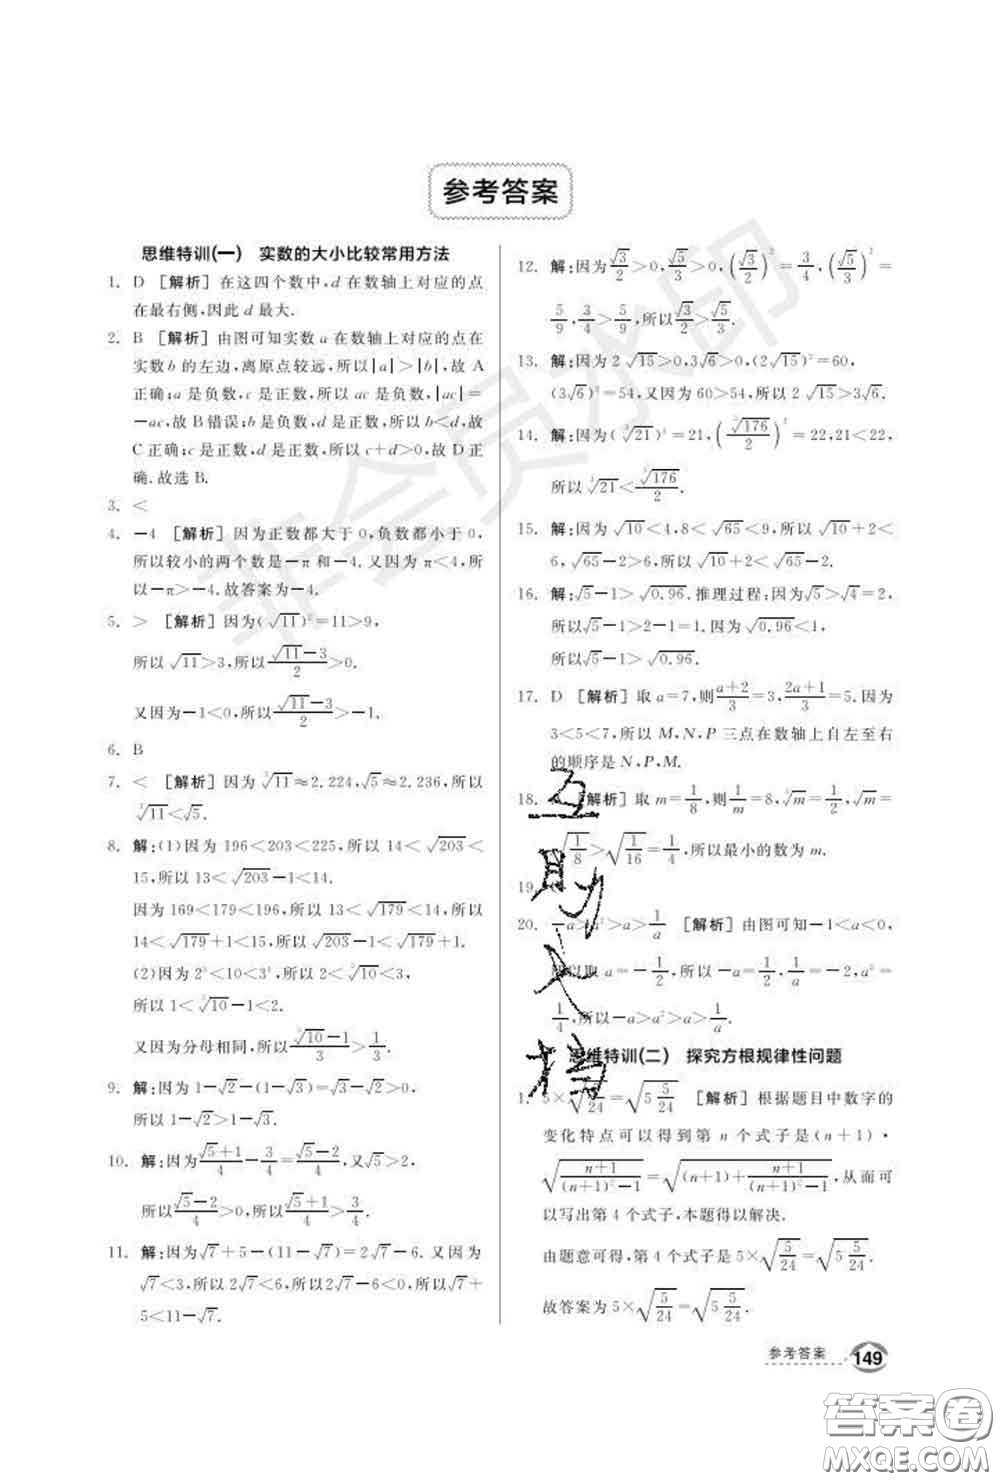 参考答案
思维特训(一) 实数的大小比较常用方法
1. D [解析] 在这四个数中,d 在数轴上对应的点
在最右侧,因此 d 最大.
2. B [解析] 由图可知实数 a 在数轴上对应的点在
实数 b 的左边,离原点较远,所以|a|>|b|,故 A
正确;a 是负数,c 是正数,所以 ac 是负数,|ac|=
-ac,故 B 错误;b 是负数,d 是正数,所以 b<d,故
C 正确;c 是正数,d 是正数,所以 c+d>0,故 D 正
确.故选 B.
3. <
4. -4 [解析] 因为正数都大于 0,负数都小于 0,
所以较小的两个数是-π 和-4.又因为 π<4,所
以-π>-4.故答案为-4.
5. > [解析] 因为(√11)²=11>9,
所以 √11>3,所以 (√11-3)/2>0.
又因为-1<0,所以 (√11-3)/2>-1.
6. B
7. < [解析] 因为 ³√11≈2.224,√5≈2.236,所以
³√11<√5.
8. 解:(1)因为 196<203<225,所以 14<√203<
15,所以 13<√203-1<14.
因为 169<179<196,所以 13<√179<14,所以
14<√179+1<15,所以 √203-1<√179+1.
(2)因为 2³<10<3³,所以 2<³√10<3,
所以 1<³√10-1<2.
又因为分母相同,所以 (³√10-1)/3>1/3.
9. 解:因为 1-√2-(1-√3)=√3-√2>0,
所以 1-√2>1-√3.
10. 解:因为 (√5+1)/4-3/4=(√5-2)/4,又√5>2,
所以 (√5-2)/4>0,所以 (√5+1)/4>3/4.
11. 解:因为 √7+5-(11-√7)=2√7-6.又因为
√7<3,所以 2√7<6,所以 2√7-6<0,所以 √7+
5<11-√7.
12. 解:因为 √3/2>0,√5/3>0,(√3/2)²=3/4,(√5/3)²=
5/9,3/4>5/9,所以 √3/2>√5/3.
13. 解:因为 2√15>0,3√6>0,(2√15)²=60,
(3√6)²=54,又因为 60>54,所以 2√15>3√6.
14. 解:因为(³√21)³=21,(³√176/2)³=22,21<22,
所以 ³√21<³√176/2.
15. 解:因为 √10<4,8<√65<9,所以 √10+2<
6,√65-2>6,所以 √10+2<√65-2.
16. 解:√5-1>√0.96.推理过程:因为√5>√4=2,
所以√5-1>2-1=1.因为 √0.96<1,
所以√5-1>√0.96.
17. D [解析] 取 a=7,则(a+2)/3=3,(2a+1)/3=5.因为
3<5<7,所以 M,N,P 三点在数轴上自左至右
的顺序是 N,P,M.
18. [解析] 取 m=1/8,则 1/m=8,³√m=1/2,√m=
√(1/8)>√(1/16)=1/4,所以最小的数为 m.
19.
20. -a>a²>a>1/a [解析] 由图可知-1<a<0,
所以取 a=-1/2,所以-a=1/2,1/a=-2,a²=
1/4,所以-a>a²>a>1/a.
思维特训(二) 探究方根规律性问题
1. 5×√(5/24)=√(5 5/24) [解析] 根据题目中数字的
变化特点可以得到第 n 个式子是(n+1)·
√((n+1)/((n+1)²-1))=√((n+1)+(n+1)/((n+1)²-1)),从而可
以写出第 4 个式子,本题得以解决.
由题意可得,第 4 个式子是 5×√(5/24)=√(5 5/24).
故答案为 5×√(5/24)=√(5 5/24).
参考答案 149
非会员水印
互助文档
答案圈
MXQE.COM